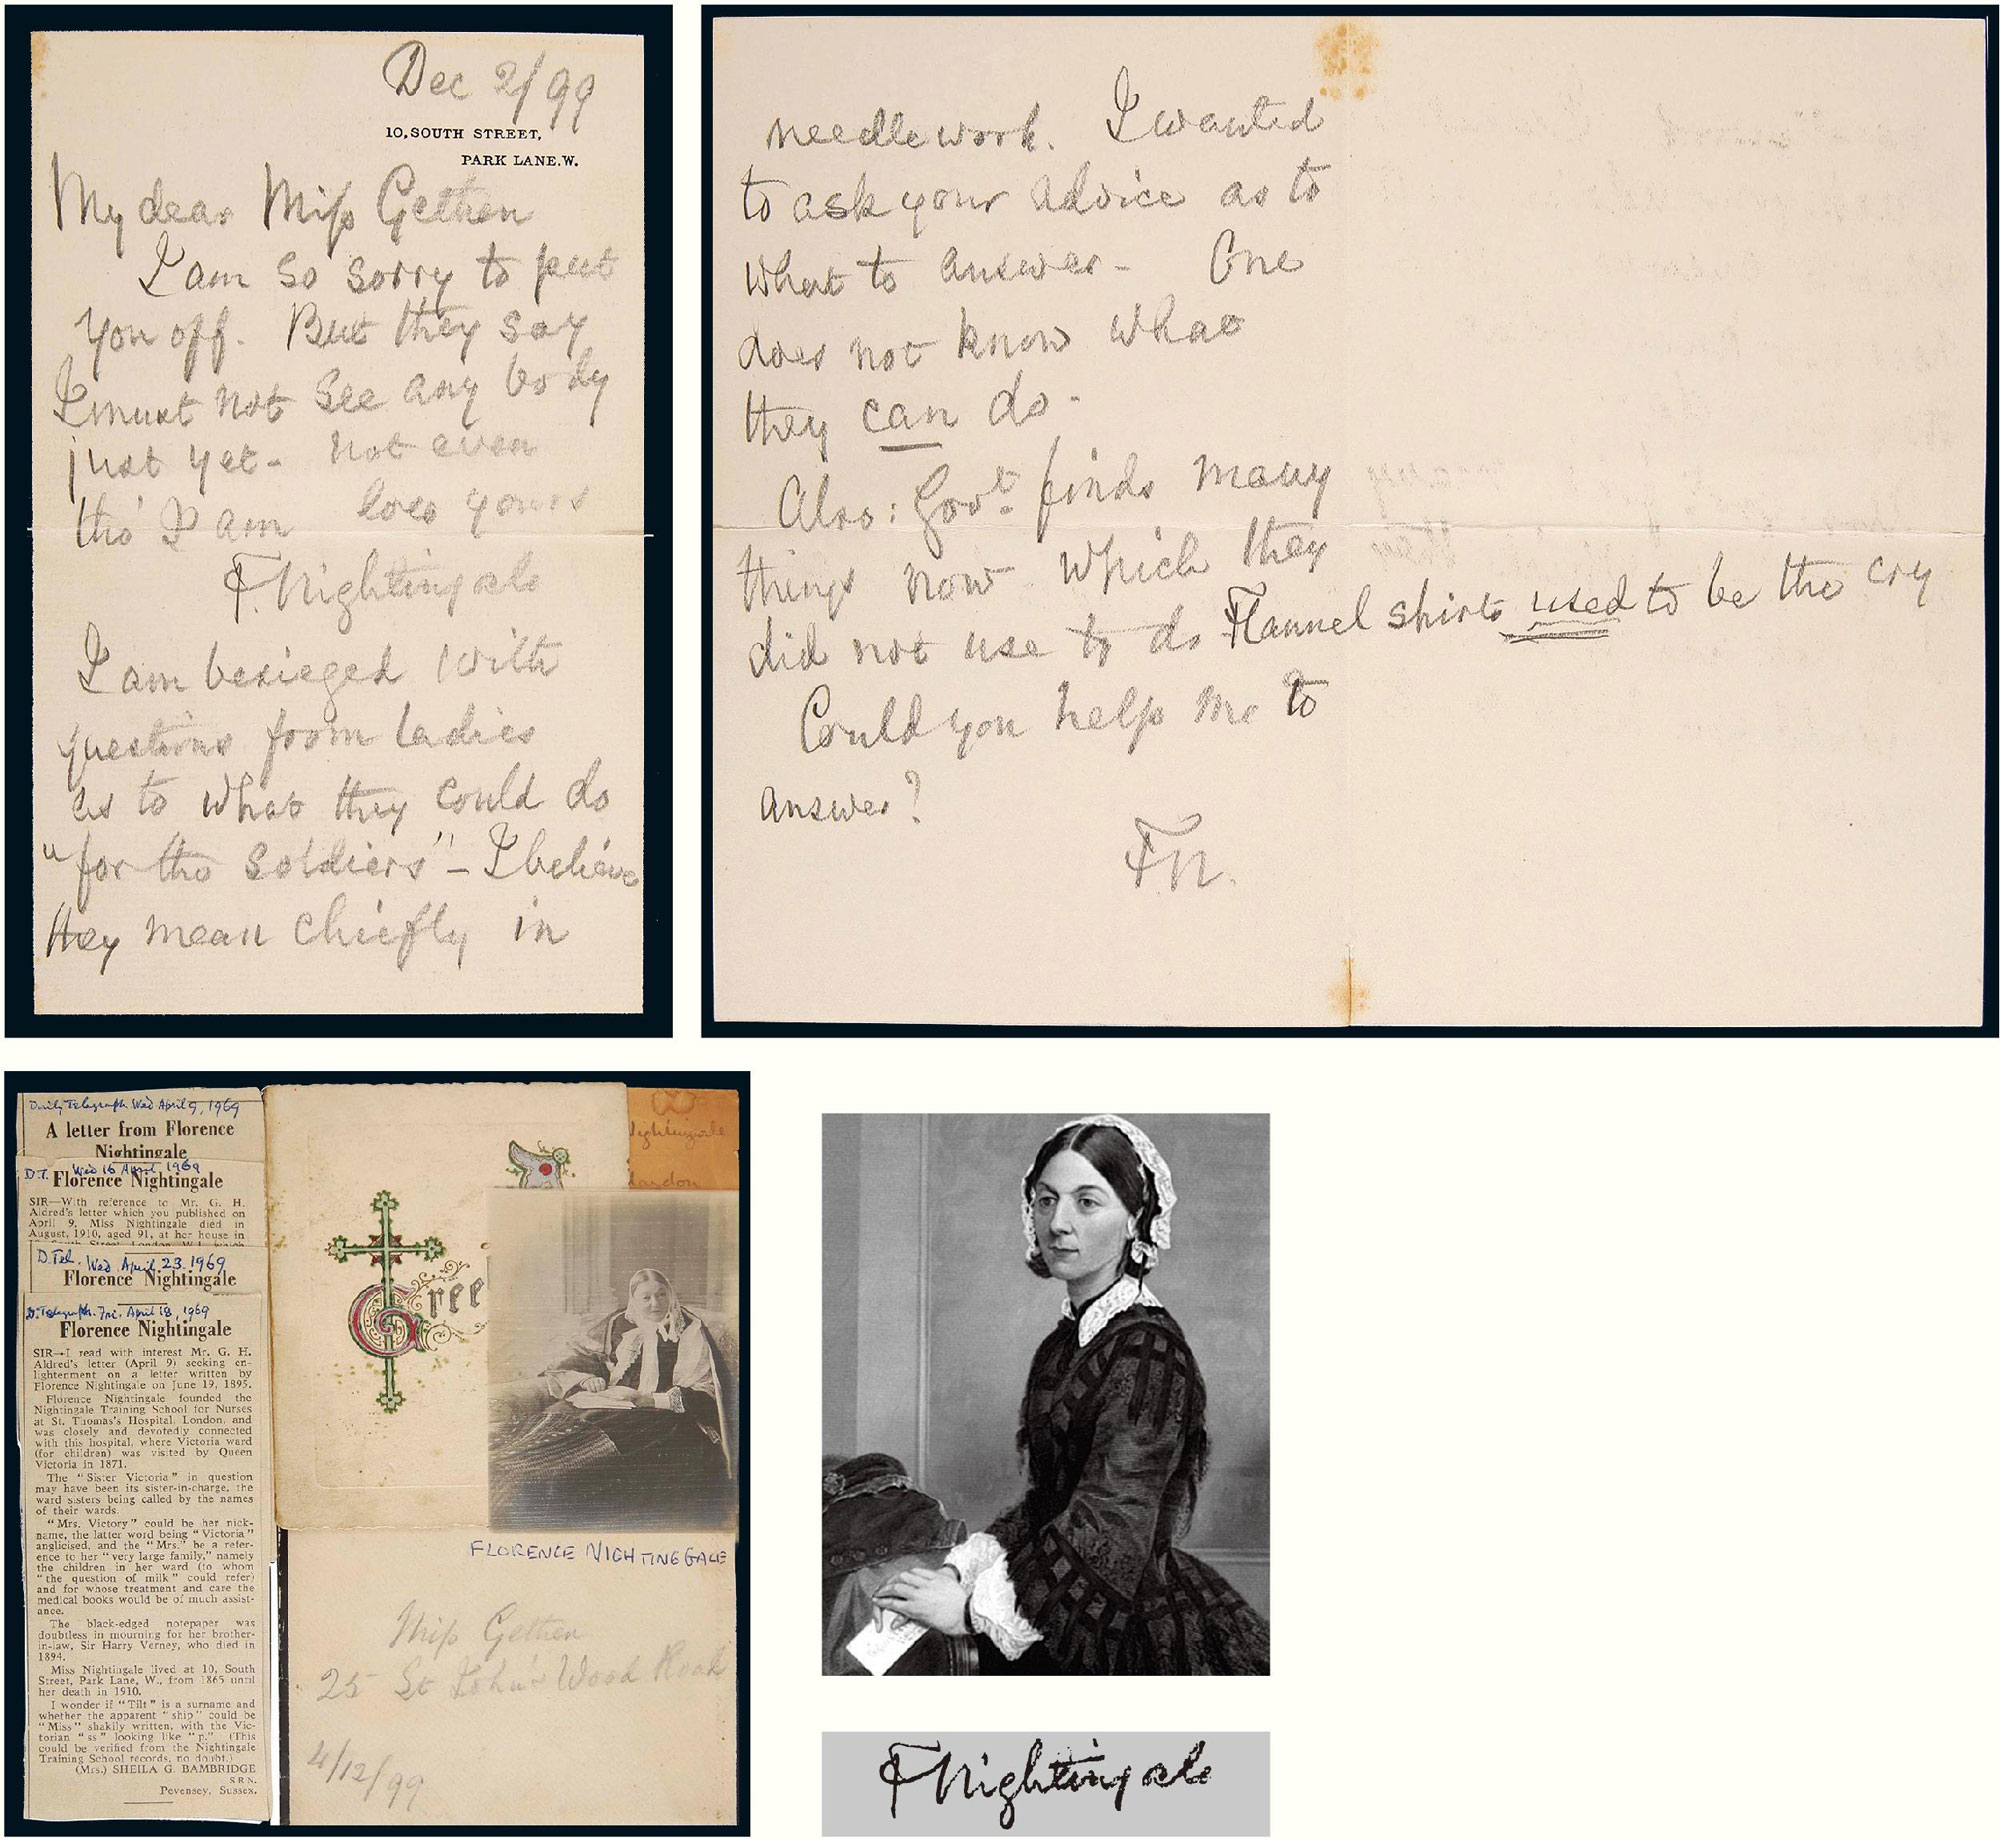 Dec 2/99
10, SOUTH STREET,
PARK LANE. W.
My dear Miss Gethen
I am so sorry to put
you off. But they say
I must not see any body
just yet - not even
tho' I am ever yours
F. Nightingale
I am besieged with
questions from ladies
as to what they could do
"for the soldiers" - I believe
they mean chiefly in
needlework. I wanted
to ask your advice as to
what to answer - One
does not know what
they can do -
Also: Govt. finds many
things now which they
did not use to do Flannel shirts used to be the cry
Could you help me to
answer?
FN.
Daily Telegraph Wed April 9, 1969
A letter from Florence
Nightingale
D.T. Wed 16 April 1969
Florence Nightingale
SIR—With reference to Mr. G. H.
Aldred's letter which you published on
April 9, Miss Nightingale died in
August, 1910, aged 91, at her house in
South Street, London, W.1, which
D. Tel. Wed April 23. 1969
Florence Nightingale
D. Telegraph. Fri. April 18, 1969
Florence Nightingale
SIR—I read with interest Mr. G. H.
Aldred's letter (April 9) seeking en-
lightenment on a letter written by
Florence Nightingale on June 19, 1895.
Florence Nightingale founded the
Nightingale Training School for Nurses
at St. Thomas's Hospital, London, and
was closely and devotedly connected
with this hospital, where Victoria ward
(for children) was visited by Queen
Victoria in 1871.
The "Sister Victoria" in question
may have been its sister-in-charge, the
ward sisters being called by the names
of their wards.
"Mrs. Victory" could be her nick-
name, the latter word being "Victoria"
anglicised, and the "Mrs." be a refer-
ence to her "very large family," namely
the children in her ward (to whom
"the question of milk" could refer)
and for whose treatment and care the
medical books would be of much assist-
ance.
The black-edged notepaper was
doubtless in mourning for her brother-
in-law, Sir Harry Verney, who died in
1894.
Miss Nightingale lived at 10, South
Street, Park Lane, W., from 1865 until
her death in 1910.
I wonder if "Tilt" is a surname and
whether the apparent "ship" could be
"Miss" shakily written, with the Vic-
torian "ss" looking like "p." (This
could be verified from the Nightingale
Training School records, no doubt.)
(Mrs.) SHEILA G. BAMBRIDGE
S.R.N.
Pevensey, Sussex.
Gree
Nightingale
London
FLORENCE NIGHTINGALE
Miss Gethen
25 St John's Wood Road
4/12/99
F Nightingale